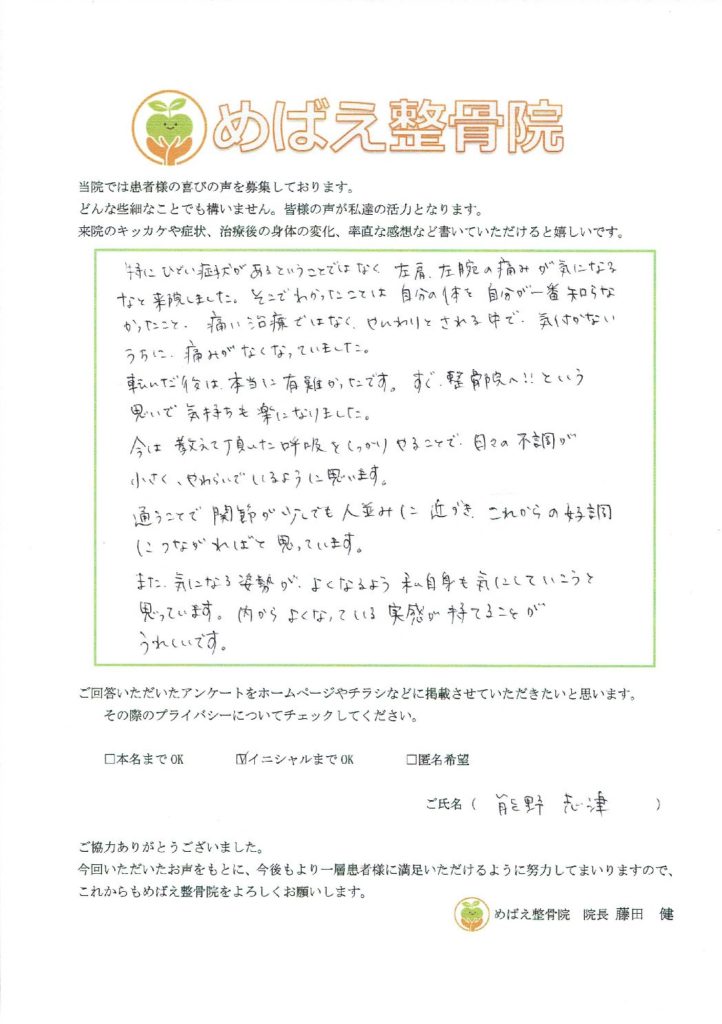 めばえ整骨院
当院では患者様の喜びの声を募集しております。
どんな些細なことでも構いません。皆様の声が私達の活力となります。
来院のキッカケや症状、治療後の身体の変化、率直な感想など書いていただけると嬉しいです。
特にひどい症状があるということではなく 左肩、左腕の痛みが気になる
なと来院しました。そこでわかったことは 自分の体を 自分が一番知らな
かったこと、痛い治療ではなく、やんわりとされる中で、気付かない
うちに、痛みがなくなっていました。
転んだ後は、本当に有難かったです。すぐ、整骨院へ!!という
思いで気持ちも楽になりました。
今は 教えて頂いた呼吸をしっかりやることで、日々の不調が
小さく、やわらいでいるように思います。
通うことで 関節が少しでも人並みに 近づき、これからの好調
につながればと思っています。
また、気になる姿勢が、よくなるよう 私自身も気にしていこうと
思っています。内からよくなっている実感が持てることが
うれしいです。
ご回答いただいたアンケートをホームページやチラシなどに掲載させていただきたいと思います。
その際のプライバシーについてチェックしてください。
□本名まで OK ☑イニシャルまで OK □匿名希望
ご氏名( 熊野 志津 )
ご協力ありがとうございました。
今回いただいたお声をもとに、今後もより一層患者様に満足いただけるように努力してまいりますので、
これからもめばえ整骨院をよろしくお願いします。
めばえ整骨院 院長 藤田 健